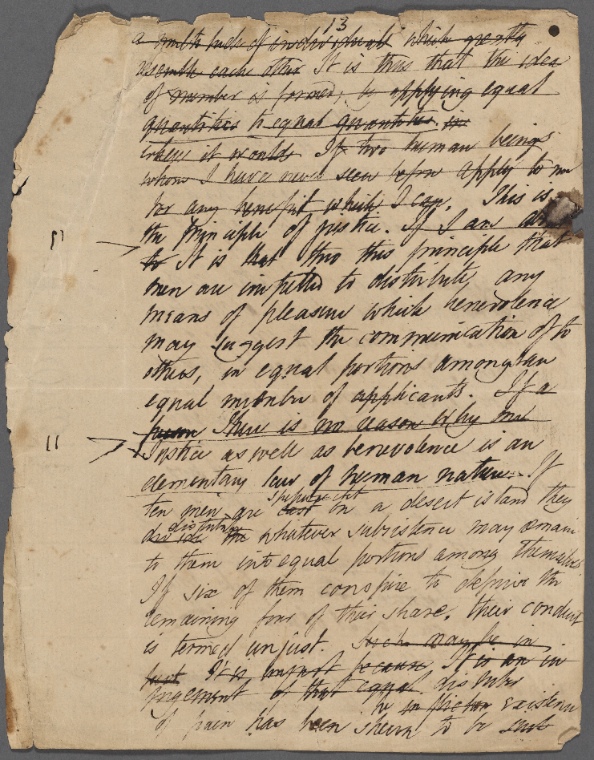 13
a multitude of individuals which greatly
resemble each other It is thus that the idea
of number is formed; by applying equal
quantities to equal quantities.
where it would If two human beings
whom I have never seen before apply to me
for any benefit which I can, This is
the principle of justice. If I am
to It is that thro this principle that
men are impelled to distribute any
means of pleasure which benevolence
may suggest the communication of to
others, in equal portions among an
equal number of applicants. If a
person There is no reason why one
Justice as well as benevolence is an
elementary law of human nature. If
shipwrecked
ten men are cast on a desert island they
distribute
divide the whatever subsistence may remain
to them into equal portions among themselves
If six of them conspire to deprive the
remaining four of their share, their conduct
is termed unjust. Such may be in
It is unjust because It is an in
fringement of that equal distribu
existence
of pain has been shewn to be